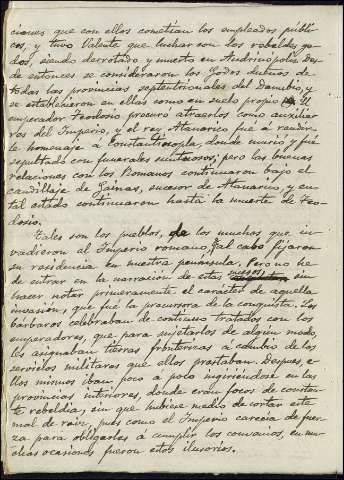 ciones que con ellos cometían los empleados públi-
cos, y tuvo Valente que luchar con los rebeldes go-
dos, siendo derrotado y muerto en Andrinópolis. Des-
de entonces se consideraron los Godos dueños de
todas las provincias septentrionales del Danubio, y
se establecieron en ellas como en suelo propio. El
emperador Teodosio procuró atraerlos como auxilia-
res del Imperio, y el rey Atanarico fué á rendir-
le homenaje á Constantinopla, donde murió y fué
sepultado con funerales suntuosos; pero las buenas
relaciones con los Romanos continuaron bajo el
caudillaje de Gainas, sucesor de Atanarico, y en
tal estado continuaron hasta la muerte de Teo-
dosio.
Tales son los pueblos, de los muchos que in-
vadieron al Imperio romano, que al cabo fijaron
su residencia en nuestra península. Pero no he
de entrar en la narración de estos sin
hacer notar primeramente el carácter de aquella
invasión, que fué la precursora de la conquista. Los
bárbaros celebraban de continuo tratados con los
emperadores, que para sujetarlos de algún modo,
les asignaban tierras fronterizas á cambio de los
servicios militares que ellos prestaban. Después, e-
llos mismos iban poco á poco ingiriéndose en las
provincias interiores, donde eran focos de constan-
te rebeldía, sin que hubiese medio de cortar este
mal de raíz, pués como el Imperio carecía de fuer-
za para obligarles á cumplir los convenios, en mu-
chas ocasiones fueron estos ilusorios.